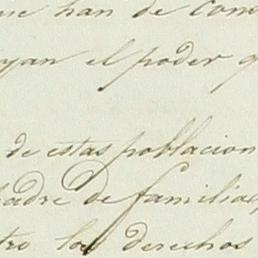 que han de com
yan el poder q
de estas poblacion
padre de familias,
tro los derechos